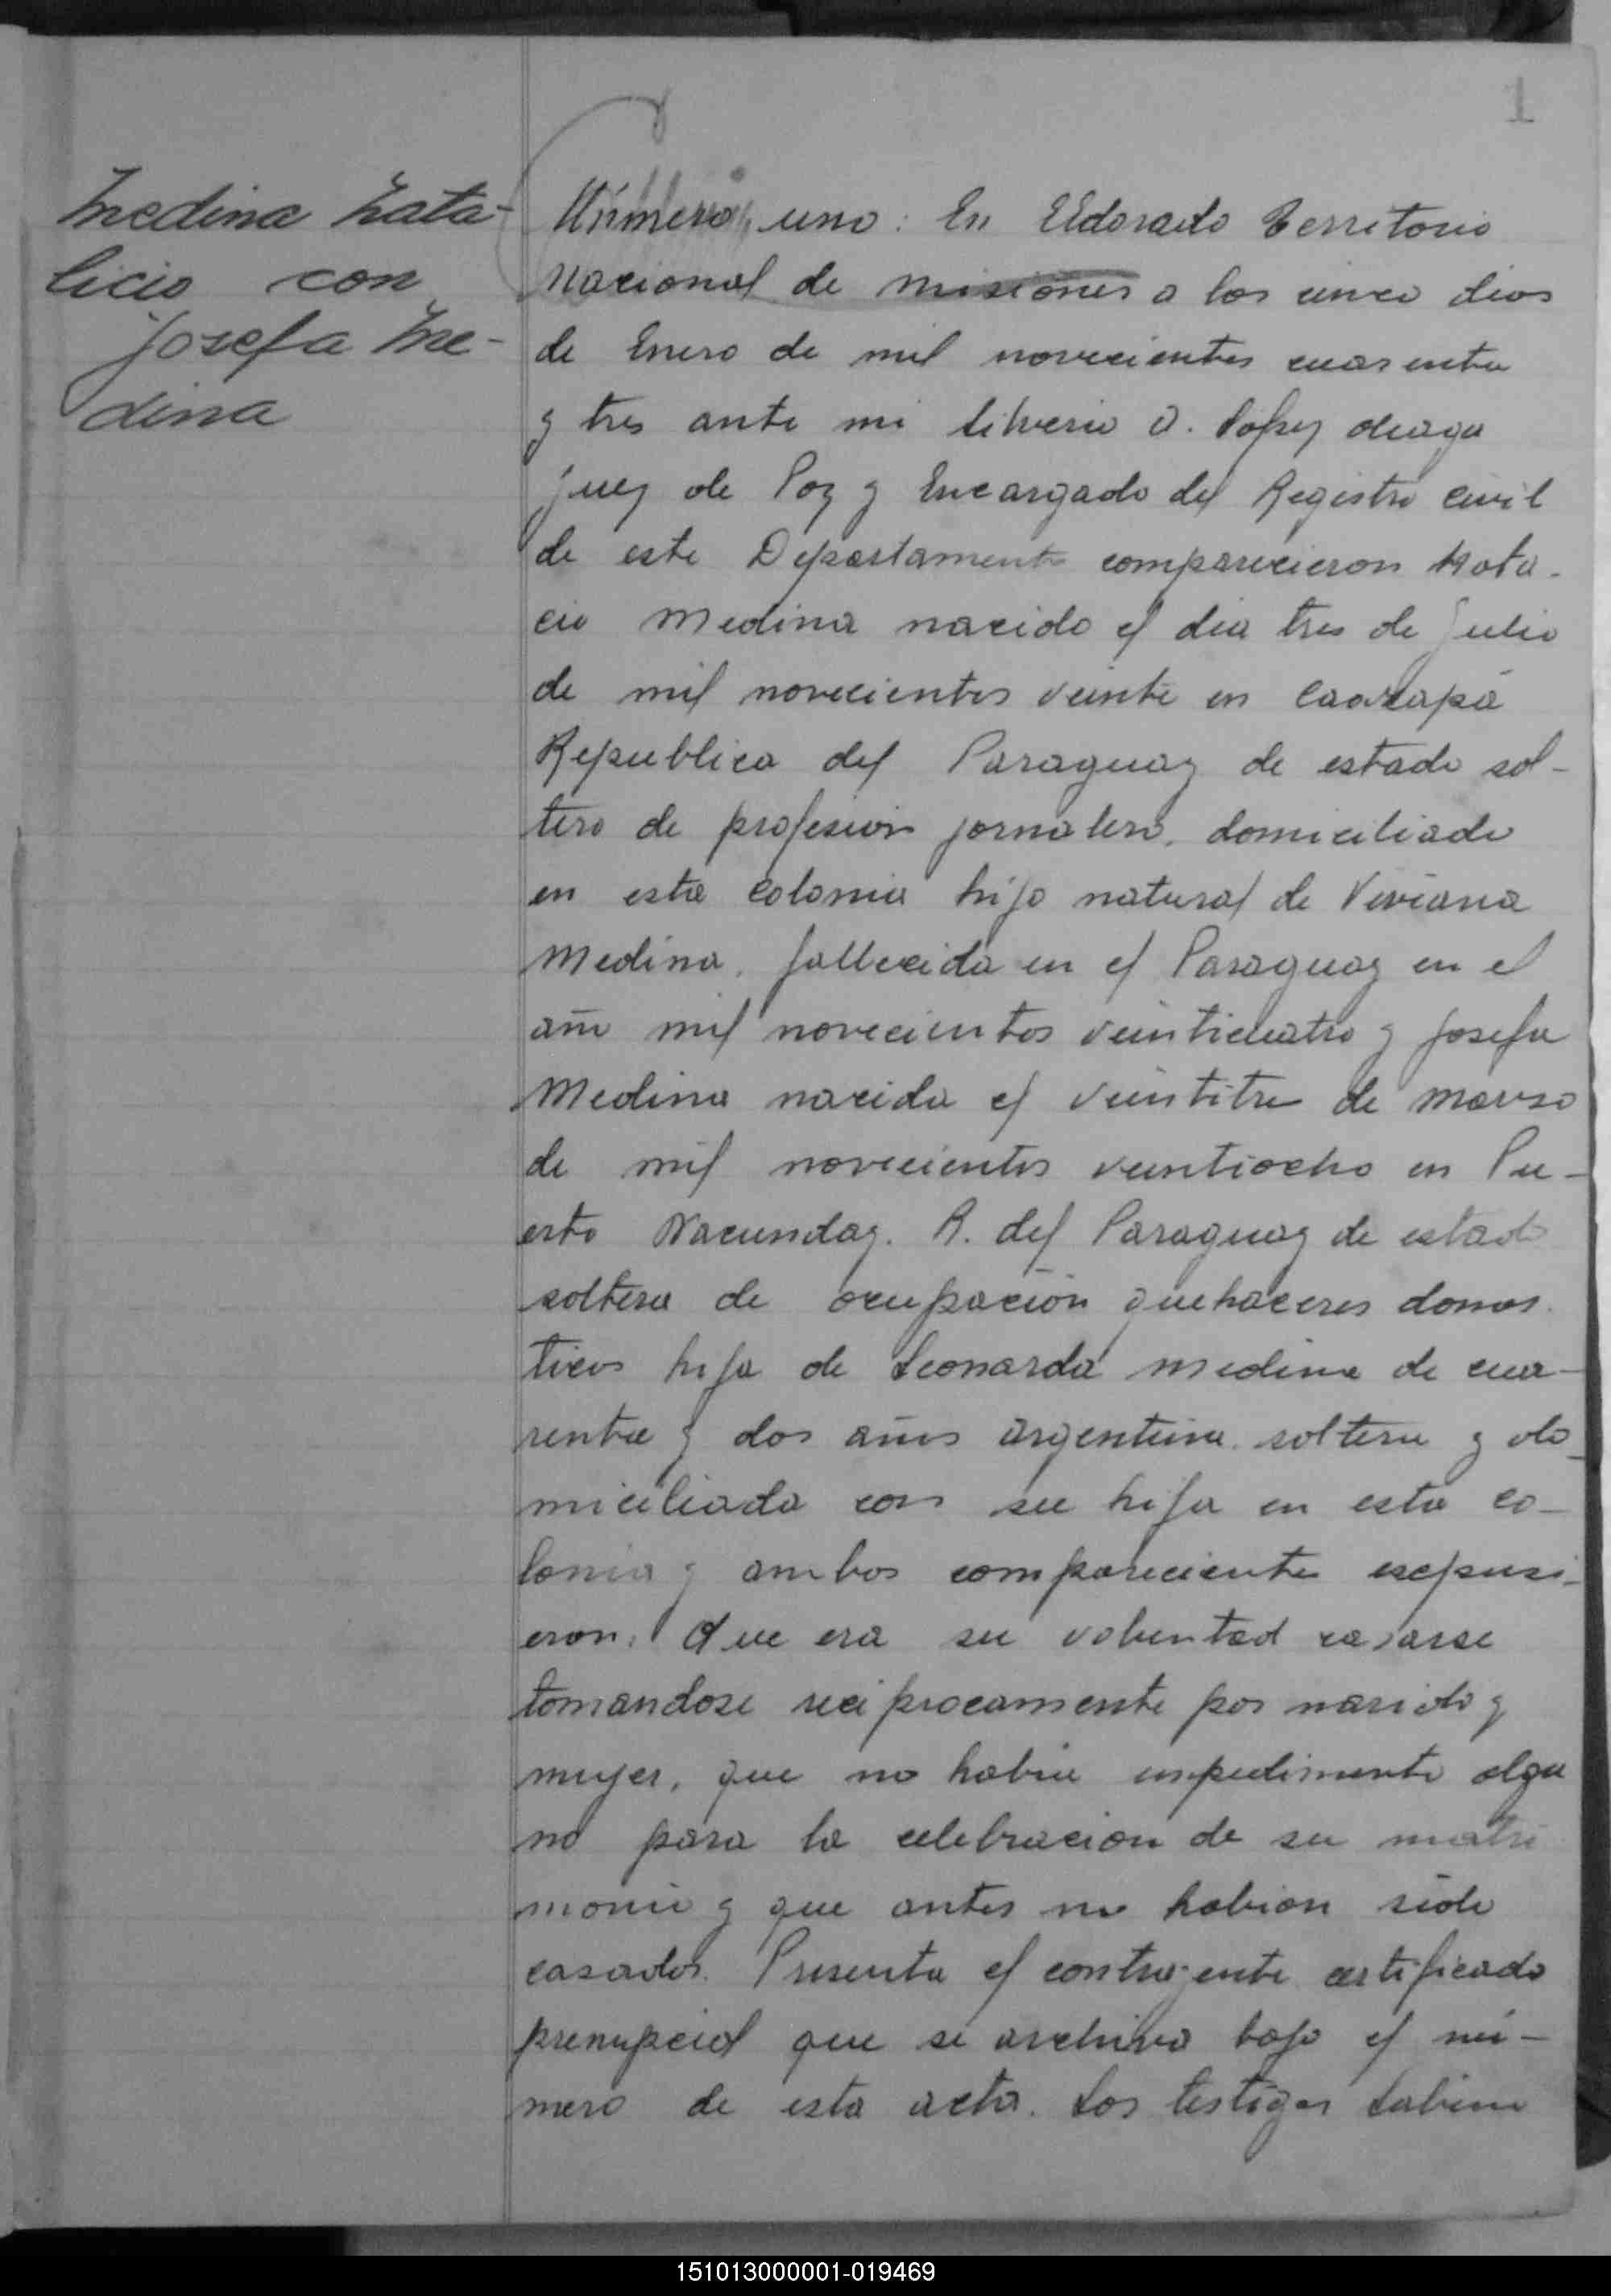 1
Medina Nata-
licio con
Josefa Me-
dina
Número uno: En Eldorado Territorio
Nacional de Misiones a los cinco dias
de Enero de mil novecientos cuarenta
y tres ante mi Silverio O. López
Juez de Paz y Encargado del Registro Civil
de este Departamento comparecieron Nata-
cio Medina nacido el dia tres de Julio
de mil novecientos veinte en Caazapá
Republica del Paraguay de estado sol-
tero de profesion jornalero, domiciliado
en esta Colonia hijo natural de Viviana
Medina, fallecida en el Paraguay en el
año mil novecientos veinticuatro y Josefa
Medina nacida el veintitres de marzo
de mil novecientos veintiocho en Pu-
erto Nacunday. R. del Paraguay de estado
soltera de ocupación quehaceres domes
ticos hija de Leonarda Medina de cua-
renta y dos años argentina, soltera y do-
miciliada con su hija en esta co-
lonia y ambos compareciente expusi-
eron: Que era su voluntad casarse
tomandose reciprocamente por marido y
mujer, que no habia impedimento algu
no para la celebracion de su matri
monio y que antes no habian sido
casados. Presenta el contrayente certificado
prenupcial que se archiva bajo el nú-
mero de esta acta. Los testigos Sabino
151013000001-019469